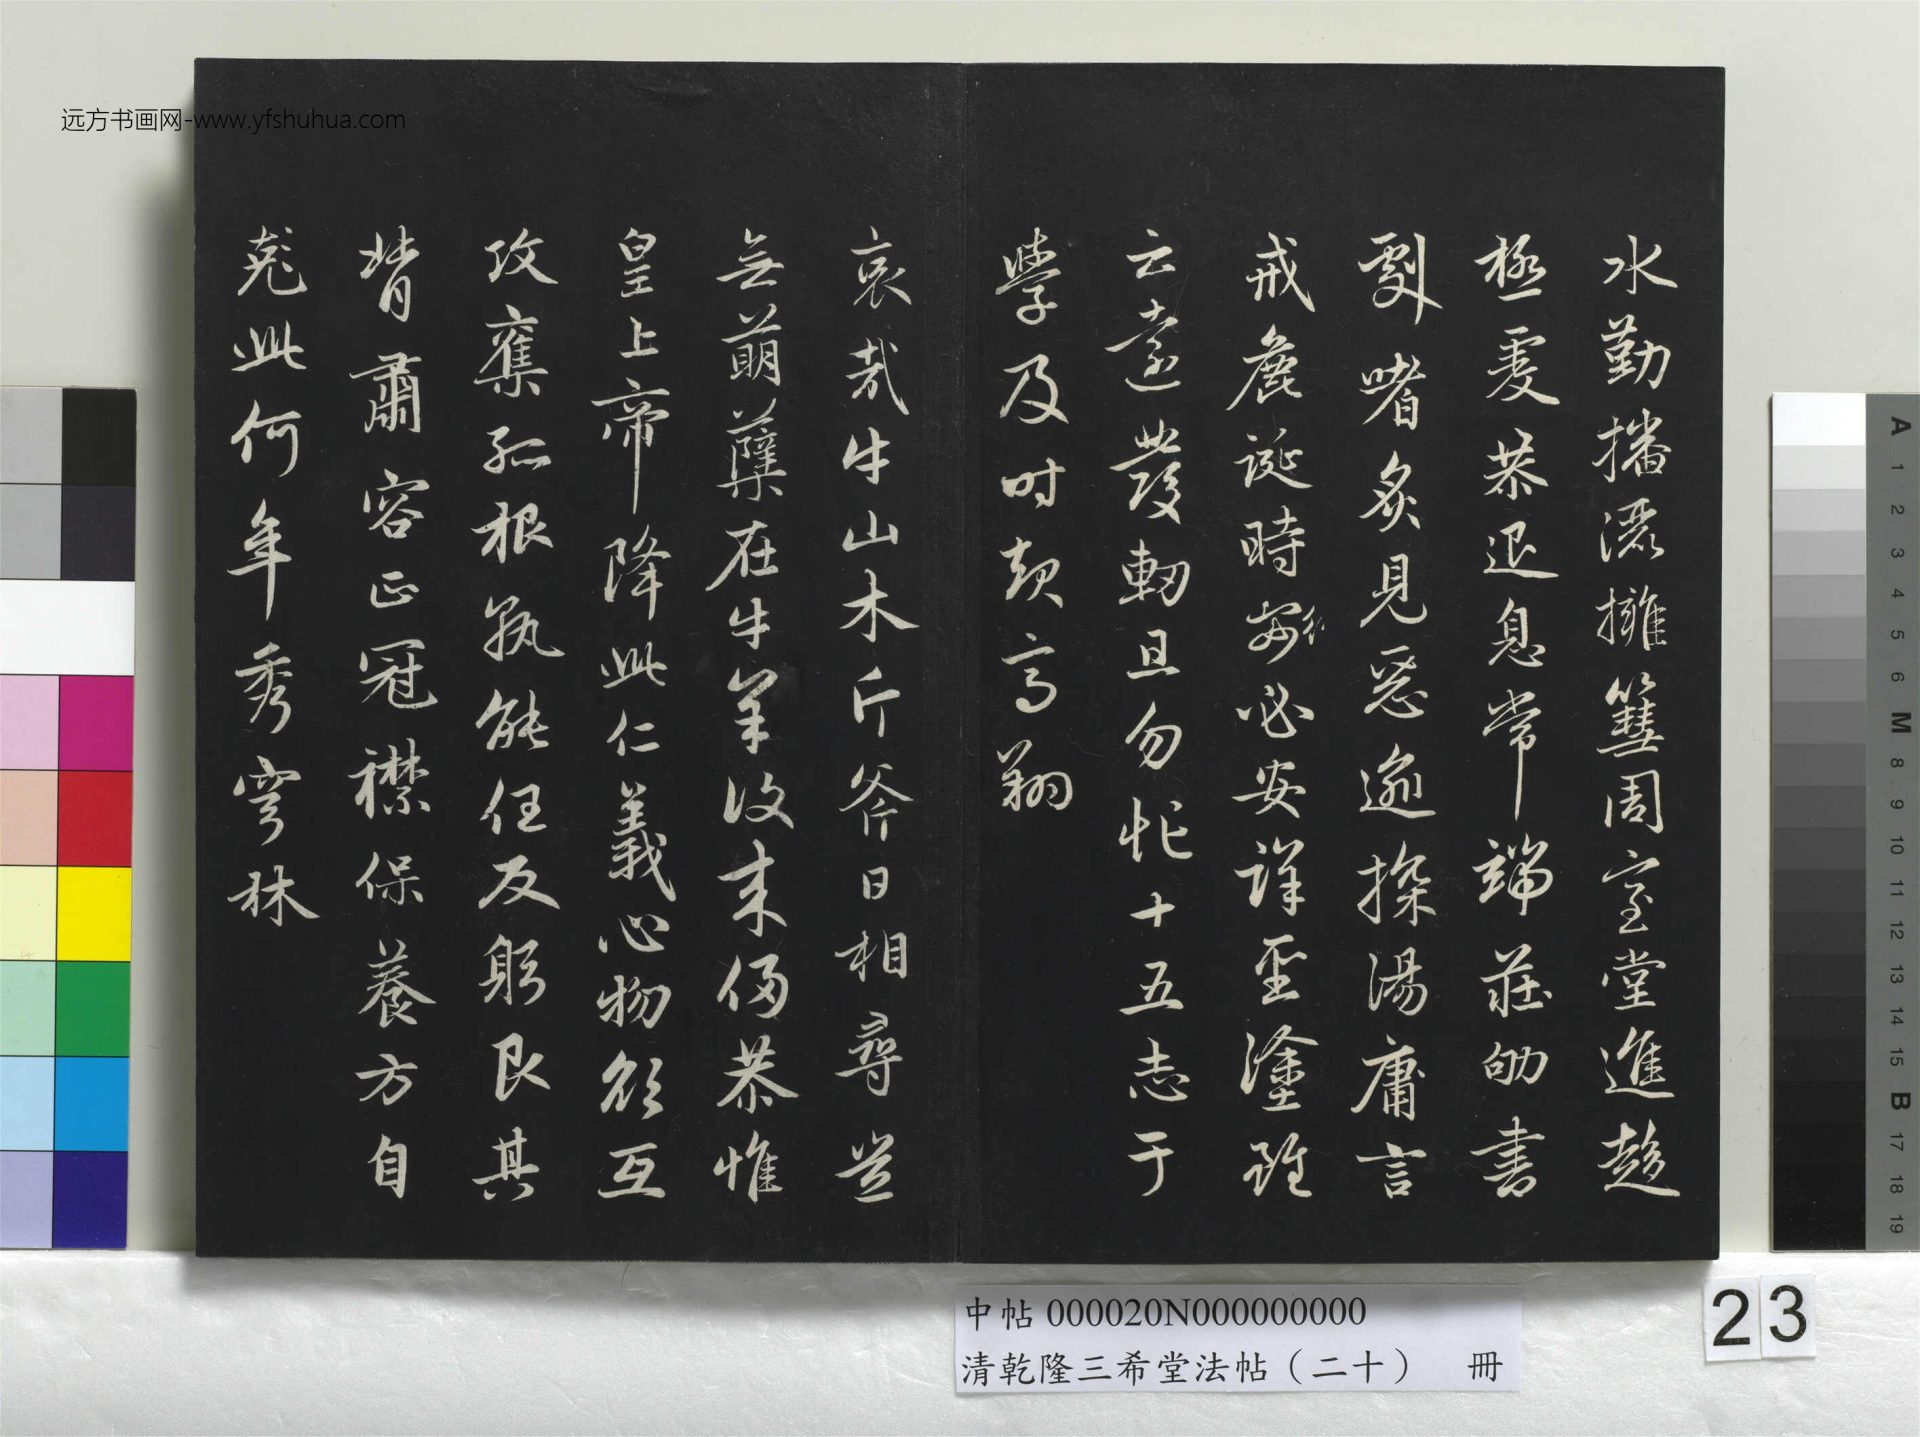 远方书画网-www.yfshuhua.com
水勤播灑擁篲周室堂進趍
極虔恭退息常端莊劬書
劇嗜炙見惡逾探湯庸言
戒麁誕時行必安詳聖塗雖
云遠發軔且勿忙十五志于
學及时起高翔
哀哉牛山木斤斧日相尋豈
無萌蘖在牛羊復來侵恭惟
皇上帝降此仁義心物欲互
攻奪孤根孰能任反躬艮其
背肅容正冠襟保養方自
此何年秀穹林
中帖 000020N000000000
清乾隆三希堂法帖（二十） 冊
23
A 1 2 3 4 5 6 M 8 9 10 11 12 13 14 15 B 17 18 19